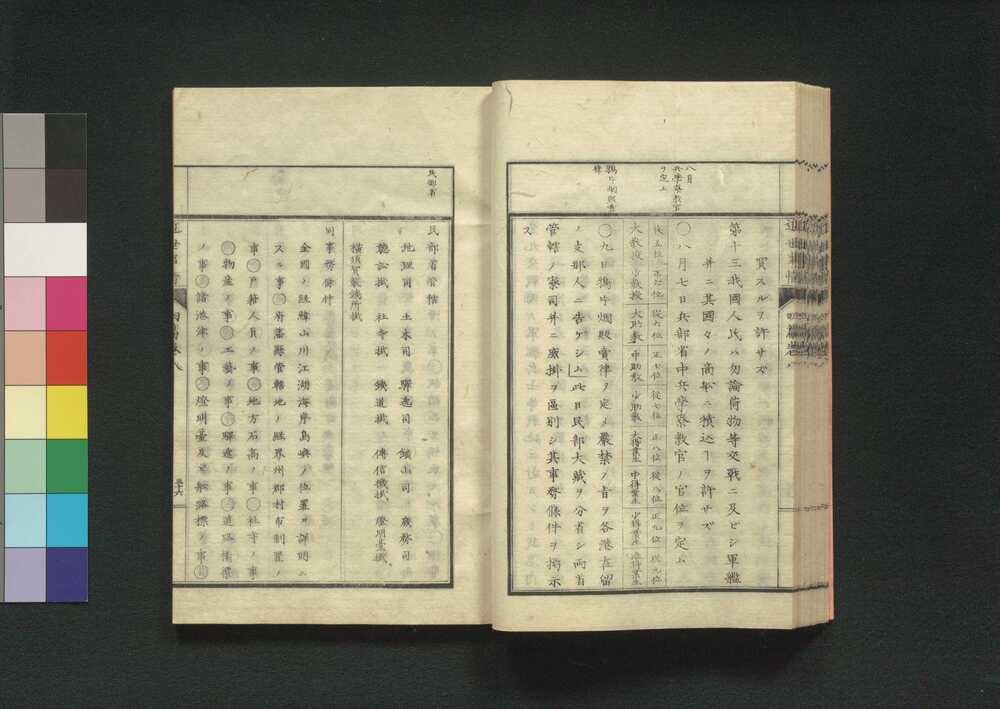 八月
兵學寮教官
ヲ定ム
鴉片烟販賣
律
買スルヲ許サズ
第十三我國人民ハ勿論荷物等交戰ニ及ビシ軍艦
并ニ其國々ノ商船ニ積込ヿヲ許サズ
〇八月七日兵部省中兵學寮教官ノ官位ヲ定ム
從五位 正六位 從六位 正七位 從七位 正八位 從八位 正九位 從九位
大教授 少教授 大助教 中助教 少助教 大得業生 中得業生 少得業生 准得業生
〇九日鴉片烟販賣律ヲ定メ嚴禁ノ旨ヲ各港在留
ノ支那人ニ告ゲシム」此日民部大藏ヲ分省シ両省
管轄ノ寮司并ニ廨掛ヲ區別シ其事務條件ヲ掲示
ス
民部省
民部省管轄
地理司 土木司 驛逓司 鑛山司 庶務司
聽訟掛 社寺掛 鐵道掛 傳信機掛 燈明臺掛
横須賀製鐵所掛
同事務條件
全國ノ經緯山川江湖海岸島嶼ノ位置ヲ詳明ニ
スル事〇府藩縣管轄地ノ經界州郡村市制置ノ
事〇戸籍人員ノ事〇地方石高ノ事〇社寺ノ事
〇物産ノ事〇工藝ノ事〇驛逓ノ事〇道路橋梁
ノ事〇諸港津ノ事〇燈明臺及ヒ船路標ノ事〇